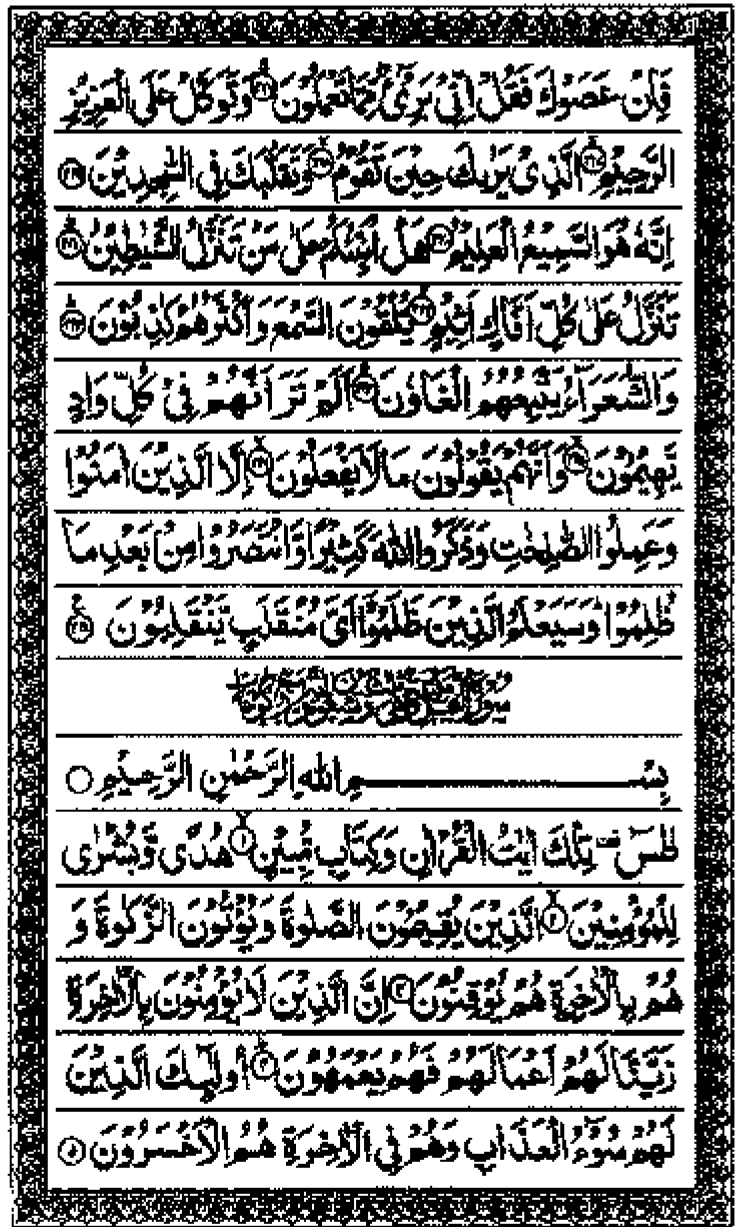 فَاِنْ عَصَوْكَ فَقُلْ اِنِّیْ بَرِیْٓءٌ مِّمَّا تَعْمَلُوْنَ ۚ﴿۲۱۶﴾ وَتَوَكَّلْ عَلَى الْعَزِیْزِ
الرَّحِیْمِ ۙ﴿۲۱۷﴾ الَّذِیْ یَرٰىكَ حِیْنَ تَقُوْمُ ۙ﴿۲۱۸﴾ وَتَقَلُّبَكَ فِی السّٰجِدِیْنَ ﴿۲۱۹﴾
اِنَّهٗ هُوَ السَّمِیْعُ الْعَلِیْمُ ﴿۲۲۰﴾ هَلْ اُنَبِّئُكُمْ عَلٰى مَنْ تَنَزَّلُ الشَّیٰطِیْنُ ؕ﴿۲۲۱﴾
تَنَزَّلُ عَلٰى كُلِّ اَفَّاكٍ اَثِیْمٍ ۙ﴿۲۲۲﴾ یُّلْقُوْنَ السَّمْعَ وَاَكْثَرُهُمْ كٰذِبُوْنَ ؕ﴿۲۲۳﴾
وَالشُّعَرَآءُ یَتَّبِعُهُمُ الْغَاوٗنَ ؕ﴿۲۲۴﴾ اَلَمْ تَرَ اَنَّهُمْ فِیْ كُلِّ وَادٍ
یَّهِیْمُوْنَ ۙ﴿۲۲۵﴾ وَاَنَّهُمْ یَقُوْلُوْنَ مَا لَا یَفْعَلُوْنَ ۙ﴿۲۲۶﴾ اِلَّا الَّذِیْنَ اٰمَنُوْا
وَعَمِلُوا الصّٰلِحٰتِ وَذَكَرُوا اللّٰهَ كَثِیْرًا وَّانْتَصَرُوْا مِنْۢ بَعْدِ مَا
ظُلِمُوْا ؕ وَسَیَعْلَمُ الَّذِیْنَ ظَلَمُوْۤا اَیَّ مُنْقَلَبٍ یَّنْقَلِبُوْنَ ﴿۲۲۷﴾
بِسْمِ اللّٰهِ الرَّحْمٰنِ الرَّحِیْمِ
طٰسٓ ۫ تِلْكَ اٰیٰتُ الْقُرْاٰنِ وَكِتَابٍ مُّبِیْنٍ ۙ﴿۱﴾ هُدًى وَّبُشْرٰى
لِلْمُؤْمِنِیْنَ ۙ﴿۲﴾ الَّذِیْنَ یُقِیْمُوْنَ الصَّلٰوةَ وَیُؤْتُوْنَ الزَّكٰوةَ وَ
هُمْ بِالْاٰخِرَةِ هُمْ یُوْقِنُوْنَ ﴿۳﴾ اِنَّ الَّذِیْنَ لَا یُؤْمِنُوْنَ بِالْاٰخِرَةِ
زَیَّنَّا لَهُمْ اَعْمَالَهُمْ فَهُمْ یَعْمَهُوْنَ ؕ﴿۴﴾ اُولٰٓئِكَ الَّذِیْنَ
لَهُمْ سُوْٓءُ الْعَذَابِ وَهُمْ فِی الْاٰخِرَةِ هُمُ الْاَخْسَرُوْنَ ﴿۵﴾